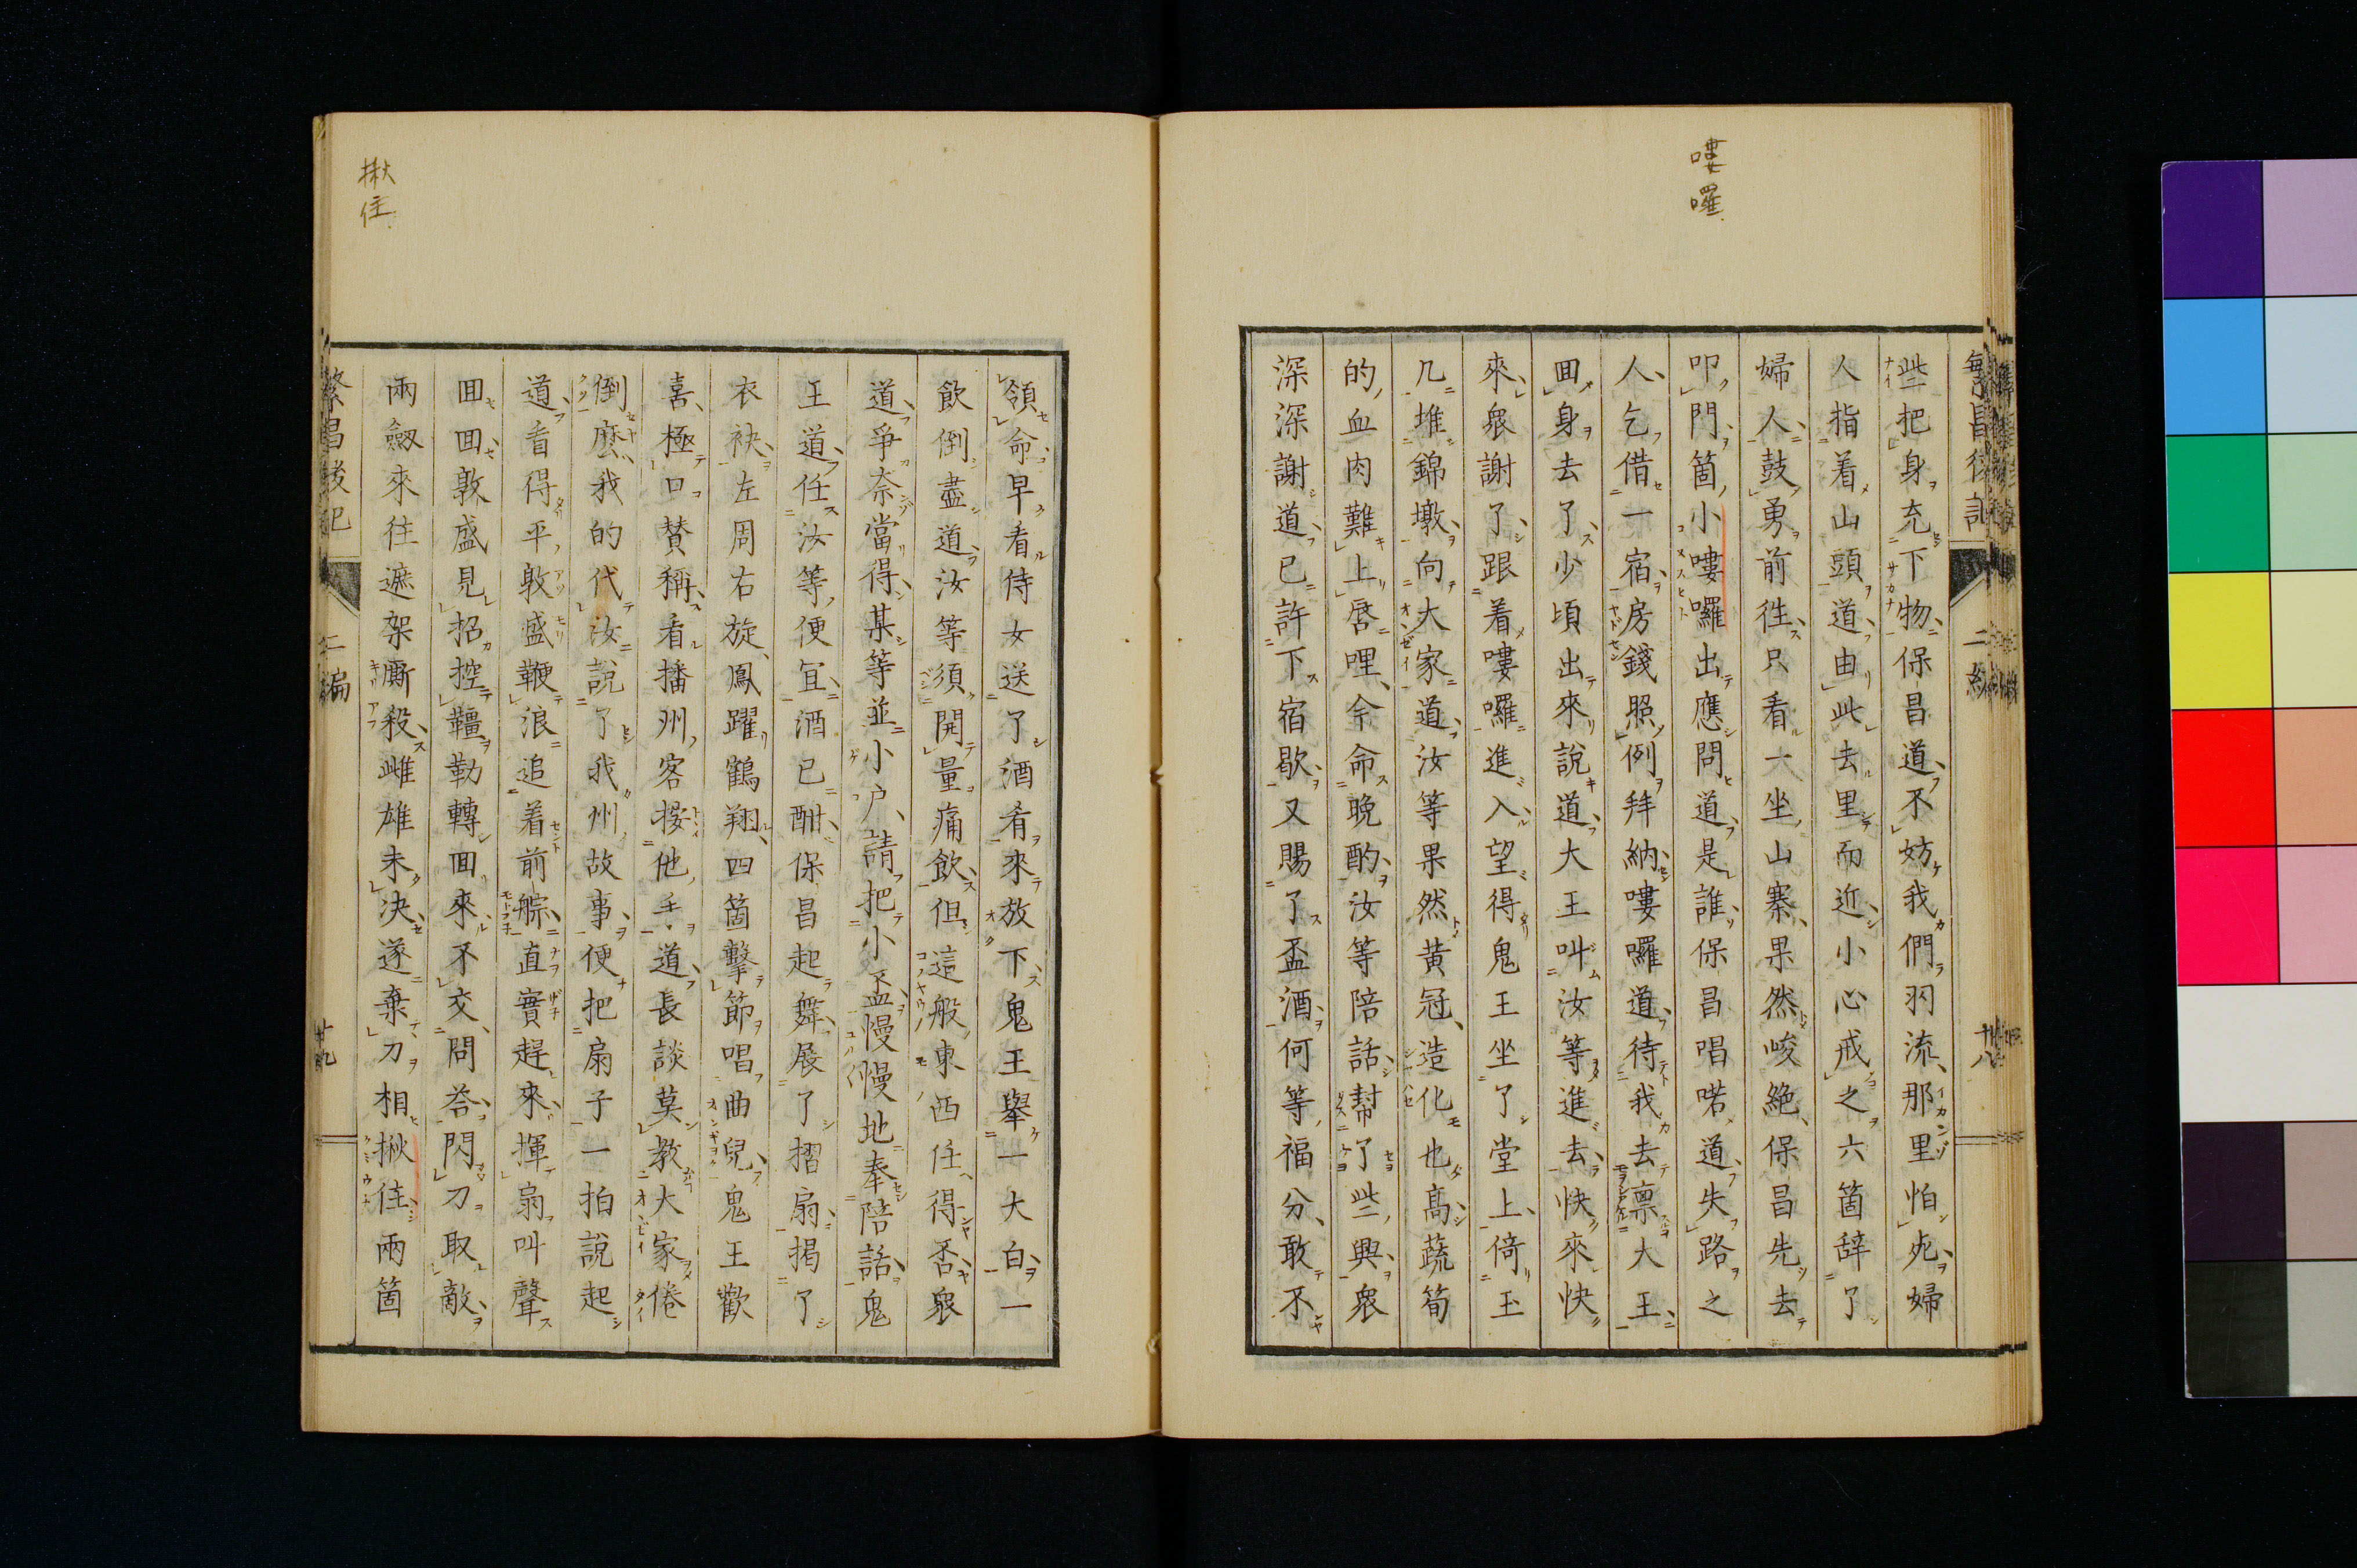 嘍囉
些把身充下物保昌道不妨我們羽流那里怕死婦
人指着山頭道由此去里而近小心戒之六箇辞了
婦人鼓勇前徃只看一坐山寨果然峻絶保昌先去
叩門箇小嘍囉出應問道是誰保昌唱喏道失路之
人乞借一宿房錢照例拜納嘍囉道待我去禀大王
回身去了少頃出來說道大王叫汝等進去快來快
來衆謝了跟着嘍囉進入望得鬼王坐了堂上倚玉
几堆錦墩向大家道汝等果然黄冠造化也高蔬筍
的血肉難上唇哩令命晩酌汝等陪話幇了些興衆
深深謝道已許下宿歇又賜了盃酒何等福分敢不
二編
廿八
揪住
領命早看侍女送了酒肴來放下鬼王舉一大白一
飲倒盡道汝等須開量痛飲但這般東西任得否衆
道爭奈當得某等並小户請把小盃慢慢地奉陪話鬼
王道任汝等便冝酒已酣保昌起舞展了摺扇揭了
衣袂左周右旋鳳躍鶴翔四箇擊節唱曲兒鬼王歡
喜極口賛稱看播州客接他手道長談莫教大家倦
倒麽我的代汝說了我州故事便把扇子一拍說起
道看得平敦盛鞭浪追着前艅直實趕來揮扇叫聲
回回敦盛見招控韁勒轉回來不交問答閃刀取敵
兩劔來往遮架厮殺雌雄未决遂棄刀相揪住兩箇
繁昌後記
二編
廿九